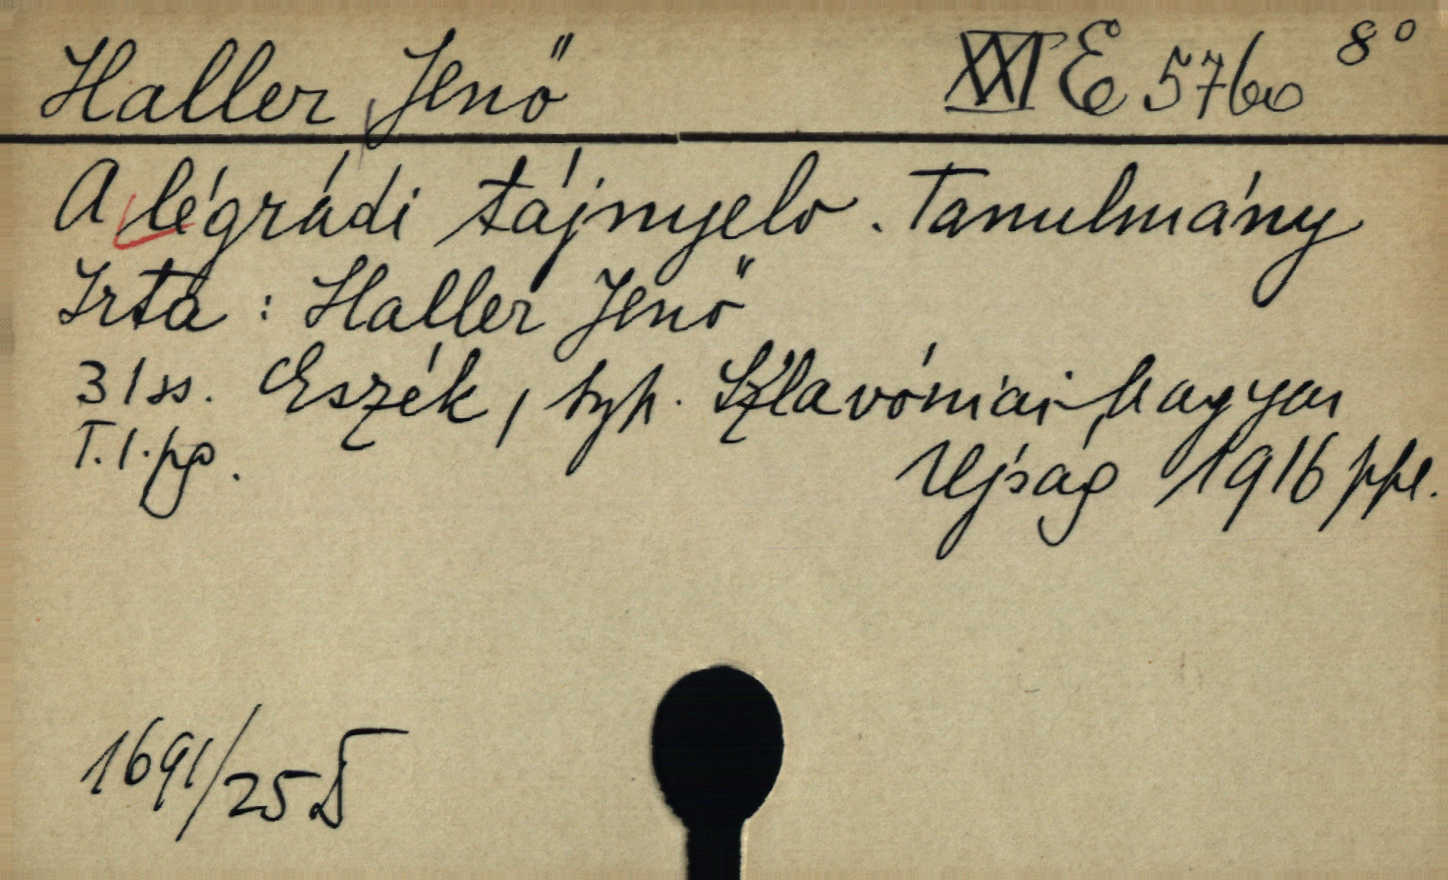 Haller Jenő XXI E 5760 8°
A légrádi tájnyelv. Tanulmány
Irta : Haller Jenő
31 ss. Eszék, typ. Szlavóniai Magyar
T. 1. pp. Ujság 1916 ppl.
1691/25